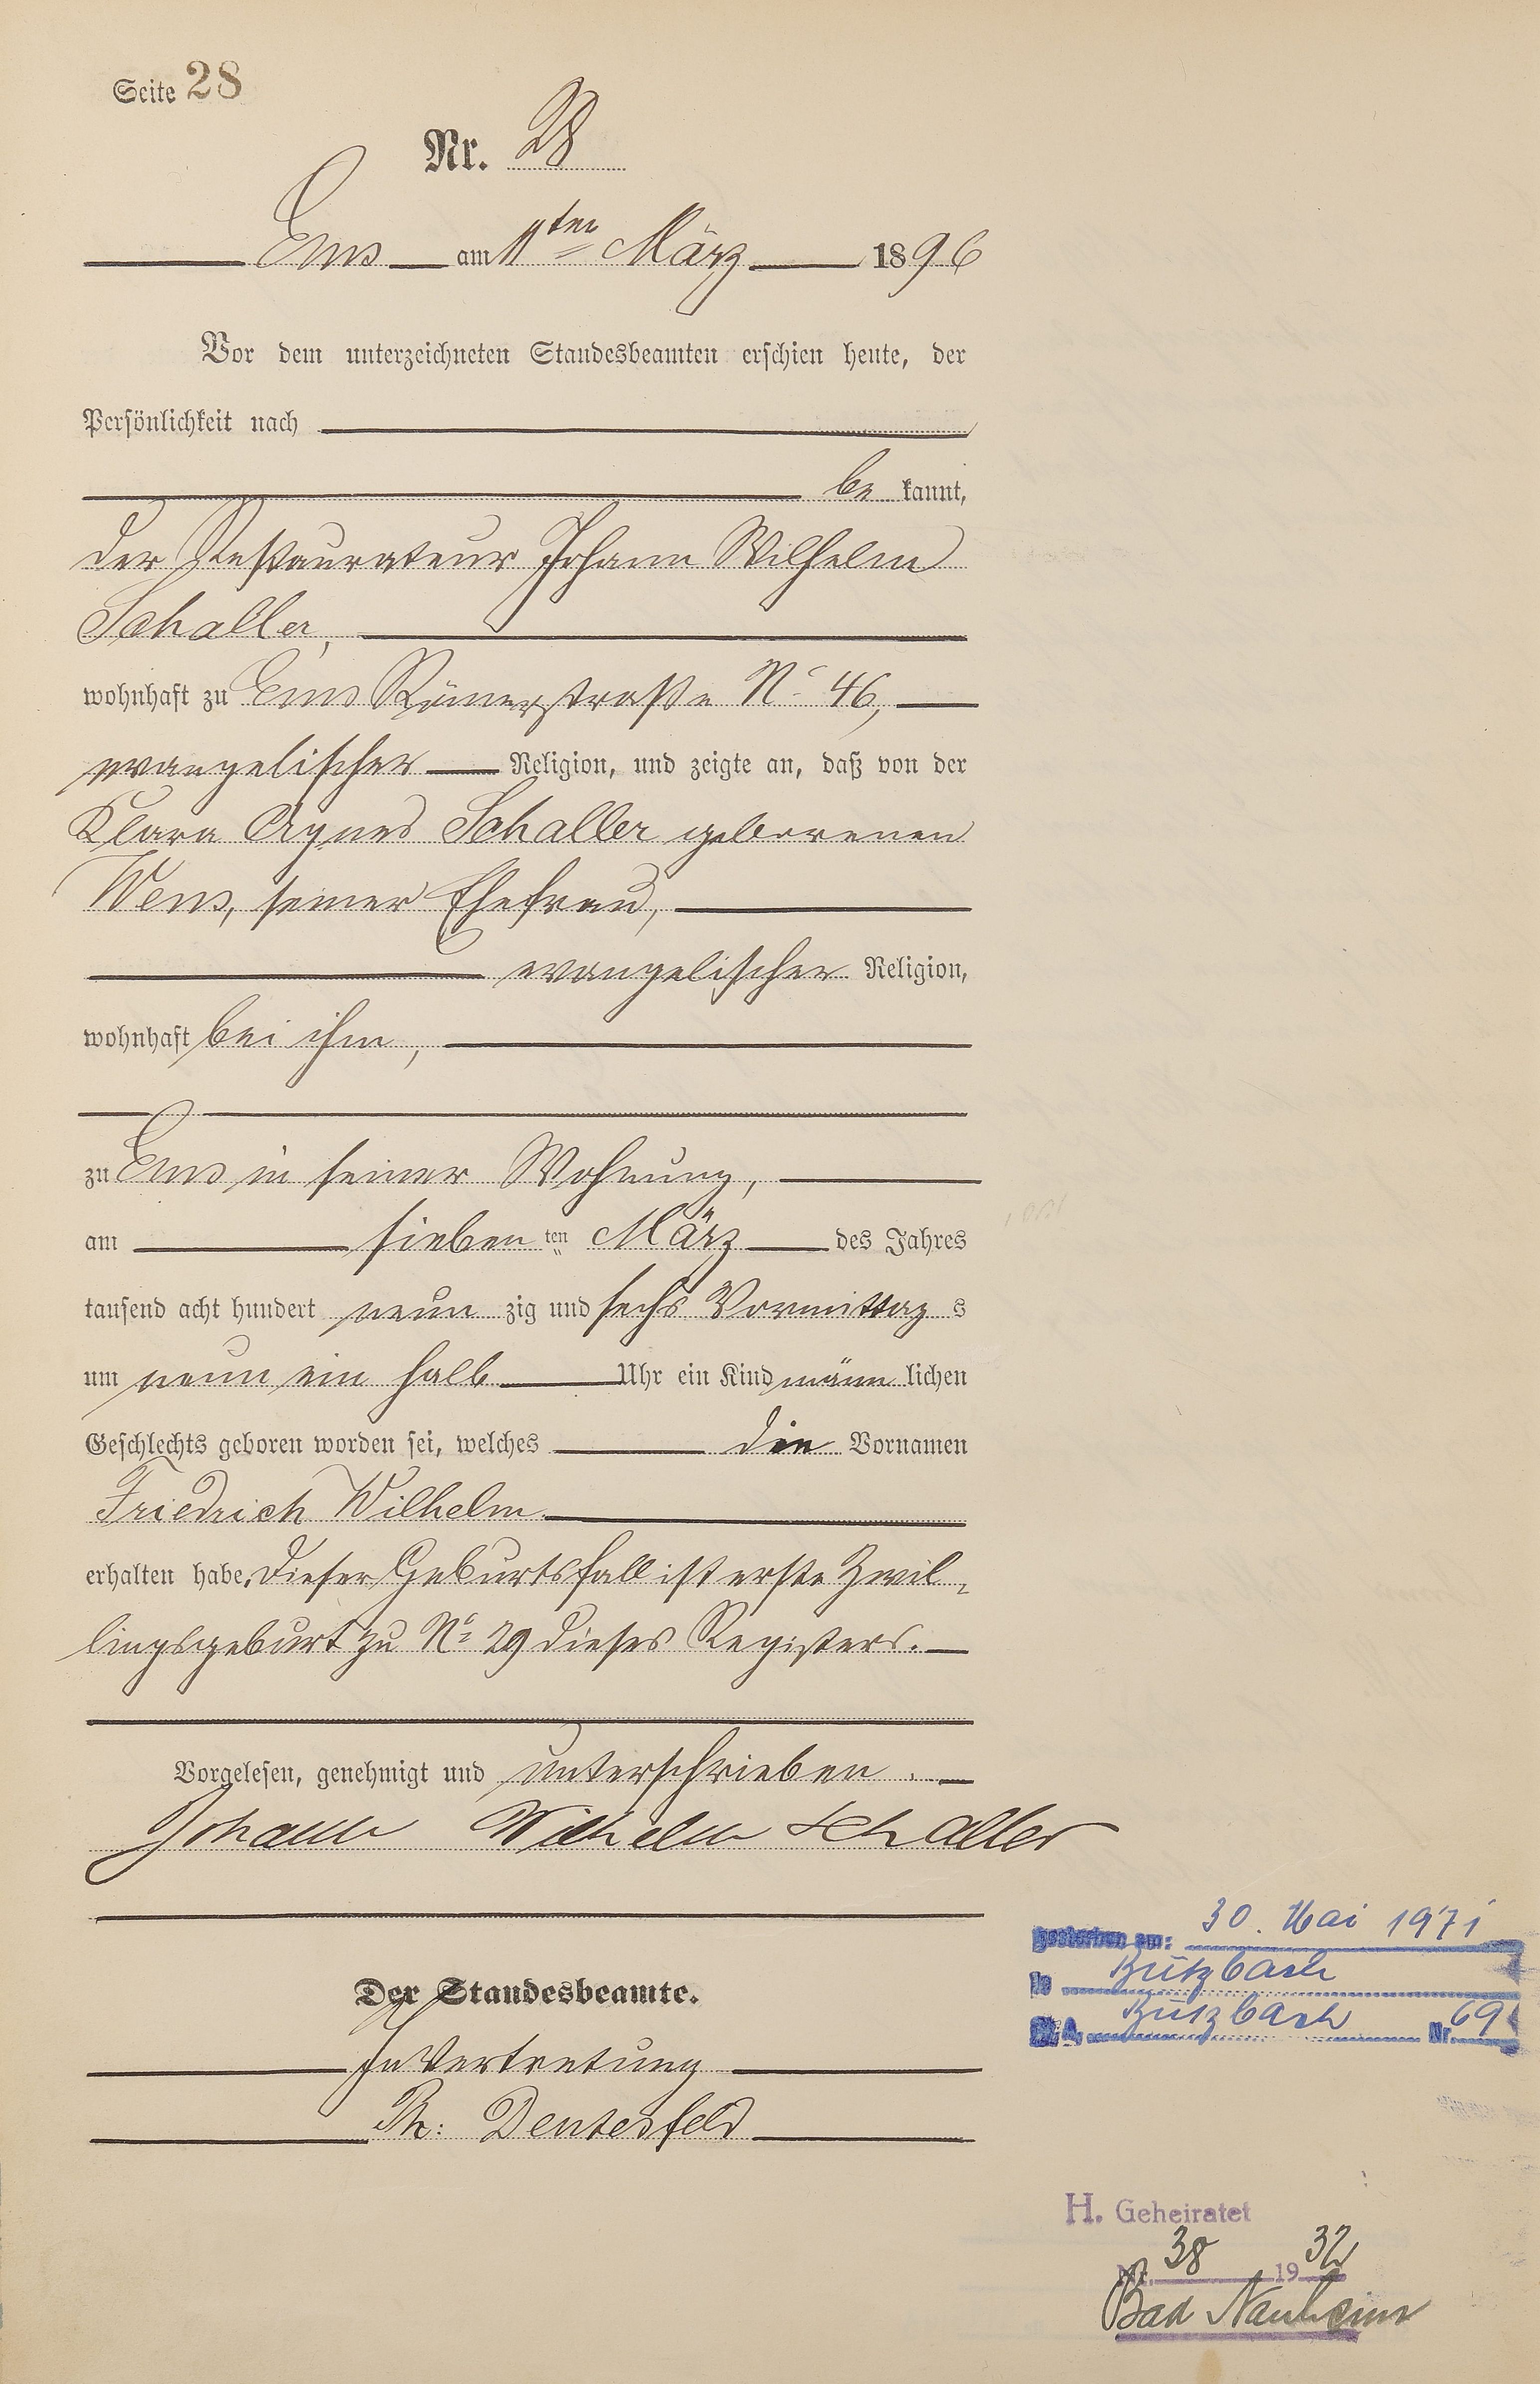 Seite 28
Nr. 28
Ems am 11ten März 1896
Vor dem unterzeichneten Standesbeamten erschien heute, der
Persönlichkeit nach
be kannt,
der Restaurateur Johann Wilhelm
Schaller,
wohnhaft zu Ems Römerstraße No 46,
evangelischer Religion, und zeigte an, daß von der
Klara Agnes Schaller geborenen
Wens, seiner Ehefrau,
evangelischer Religion,
wohnhaft bei ihm,
zu Ems in seiner Wohnung,
am sieben ten März des Jahres
tausend acht hundert neun zig und sechs Vormittag s
um neun ein halb Uhr ein Kind männ lichen
Geschlechts geboren worden sei, welches die Vornamen
Friedrich Wilhelm
erhalten habe. Dieser Geburtsfall ist erste Zwil-
lingsgeburt zu No 29 dieses Registers.
Vorgelesen, genehmigt und unterschrieben.
Johann Wilhelm Schaller
Der Standesbeamte.
In Vertretung
gestorben am: 30. Mai 1971
in Butzbach
St. A. Butzbach Nr. 69
H. Geheiratet
Nr. 38 1932
Bad Nauheim